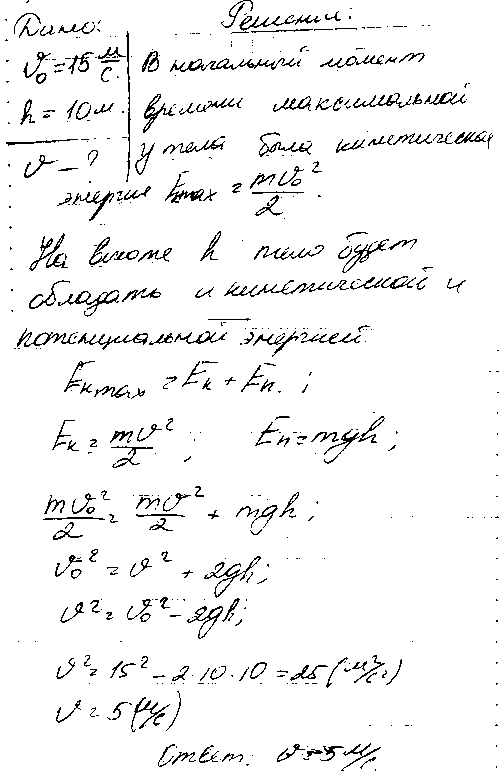 Дано: Решение:
v₀ = 15 м/с В начальный момент
h = 10 м времени максимальной
v – ? у тела была кинетическая
энергия Eкmax = mv₀²/2.
На высоте h тело будет
обладать и кинетической и
потенциальной энергией
Eкmax = Eк + Eп. ;
Eк = mv²/2 ; Eп = mgh ;
mv₀²/2 = mv²/2 + mgh ;
v₀² = v² + 2gh;
v² = v₀² – 2gh;
v² = 15² – 2·10·10 = 25 (м²/с²)
v = 5 (м/с)
Ответ: v = 5 м/с.